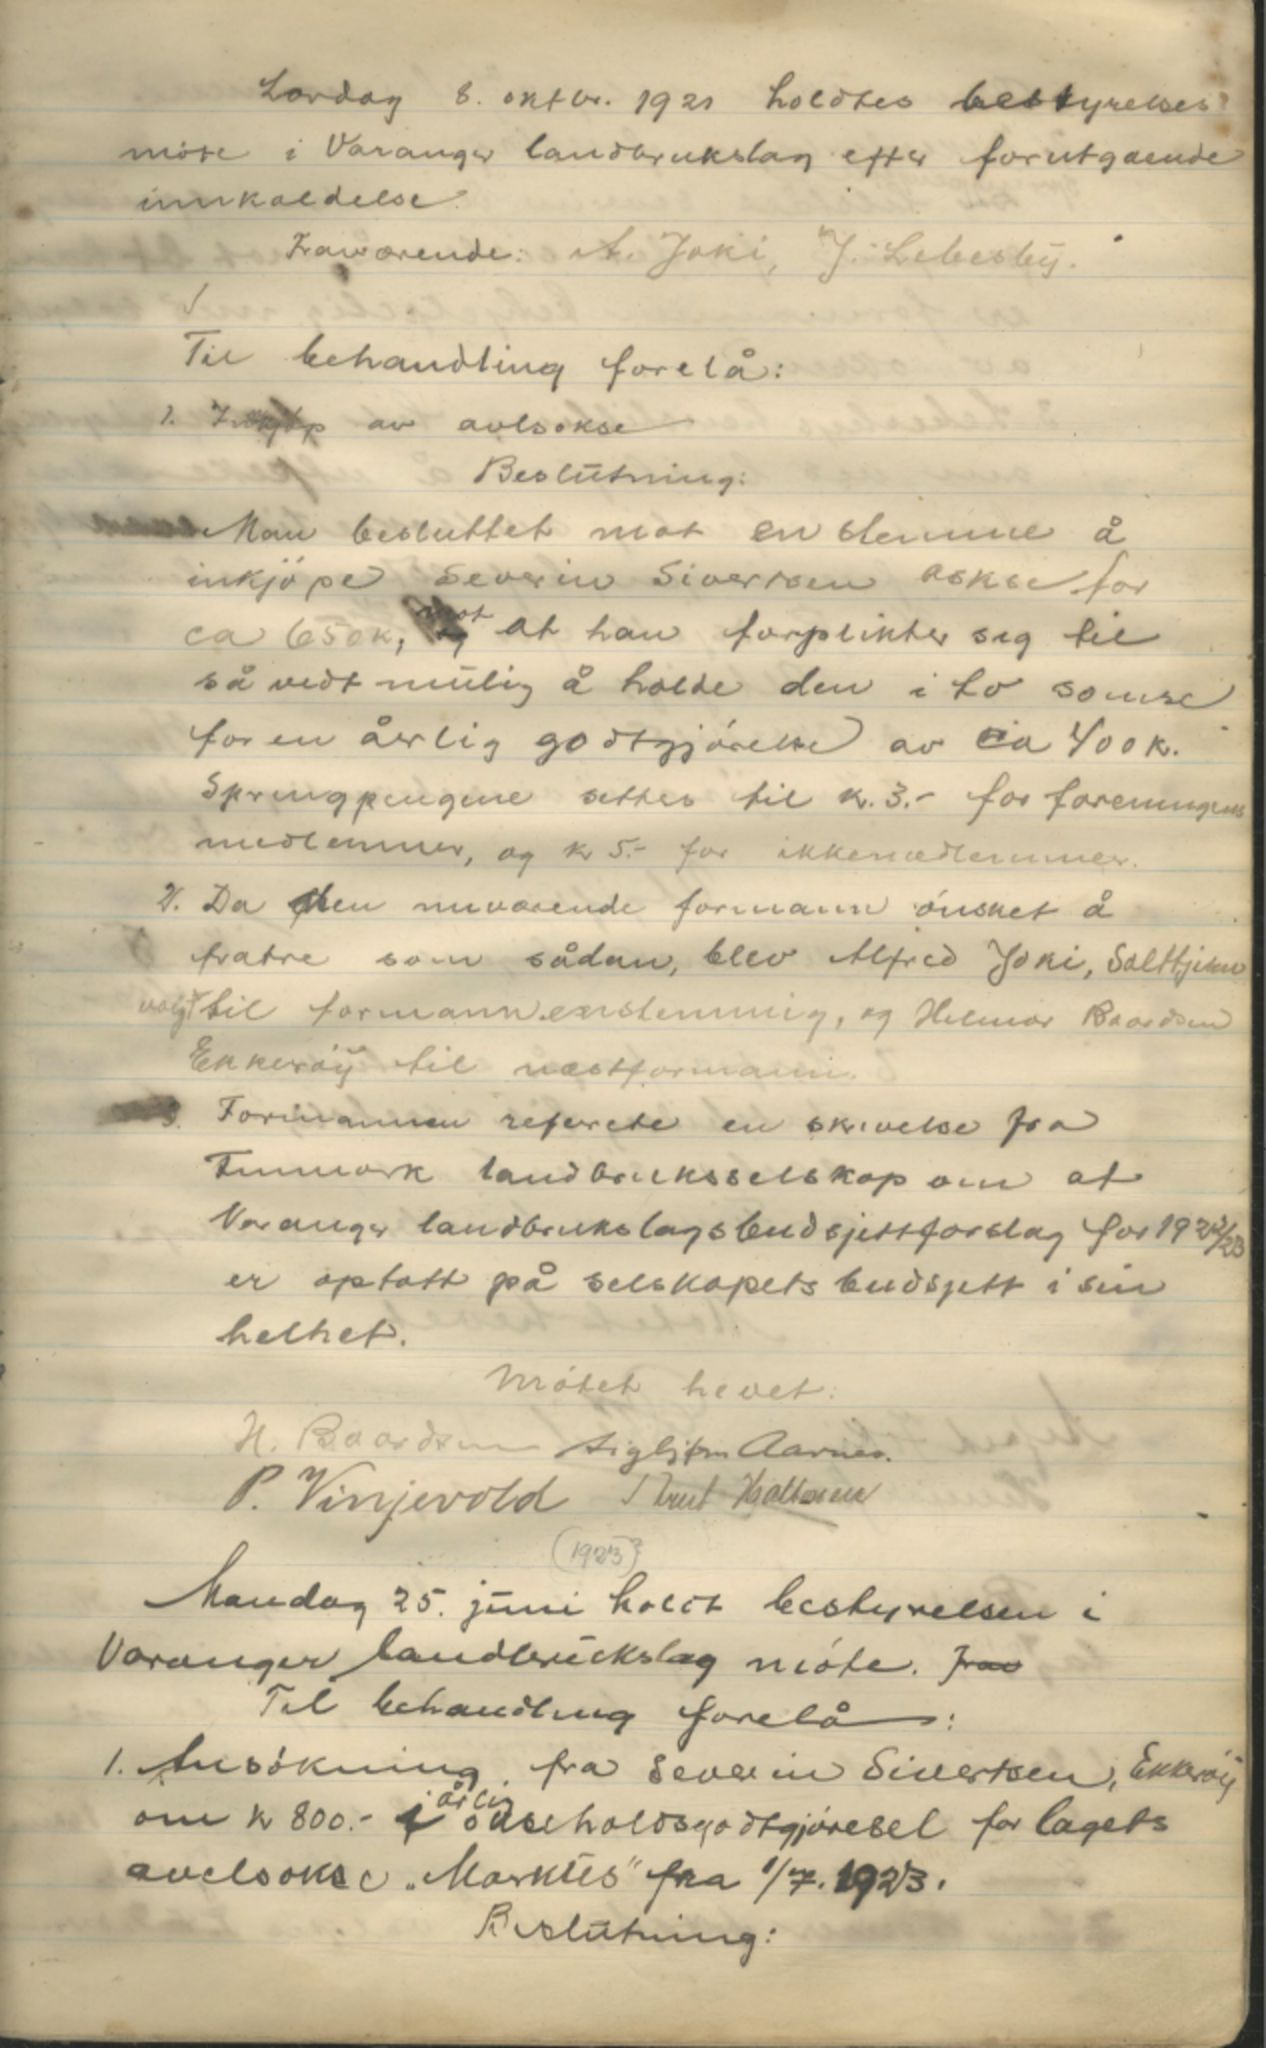 Lørdag 8. oktbr. 1921 holdtes bestyrelses
møte i Varanger landbrukslag efter forutgaende
innkaldelse.
Fraværende: A. Joki, J. Lebesby.
Til behandling forelå:
1. Inkjøp av avlsokse
Beslutning:
Man besluttet mot en stemme å
inkjöpe Severin Sivertsen okse for
ca 650 k, mot at han forplikter sig til
så vidt mulig å holde den i to somre
for en årlig godtgjørelse av ca 400 k.
Springpengene settes til k. 3.- for foreningens
medlemmer, og kr 5.- for ikkemedlemmer.
2. Da den nuværende formann ønsket å
fratre som sådan, blev Alfred Joki, Salttjern
valgt til formann enstemmig, og Helmar Baardsen
Ekkerøy til næstformann.
3. Formannen referete en skrivelse fra
Finmark landbruksselskap om at
Varanger landbrukslags budsjettforslag for 1922/23
er optatt på selskapets budsjett i sin
helhet.
Møtet hevet.
H. Baardsen Sigbjørn Aarnes.
P. Vinjevold Knut
(1923)?
Mandag 25. juni holdt bestyrelsen i
Varanger landbrukslag møte. Frav
Til behandling forelå:
1. Ansökning fra Severin Sivertsen, Ekkerøy
om kr 800.- i årlig okseholdsgodtgjøresel for lagets
avelsokse „Markus" fra 1/7. 1923.
Beslutning: